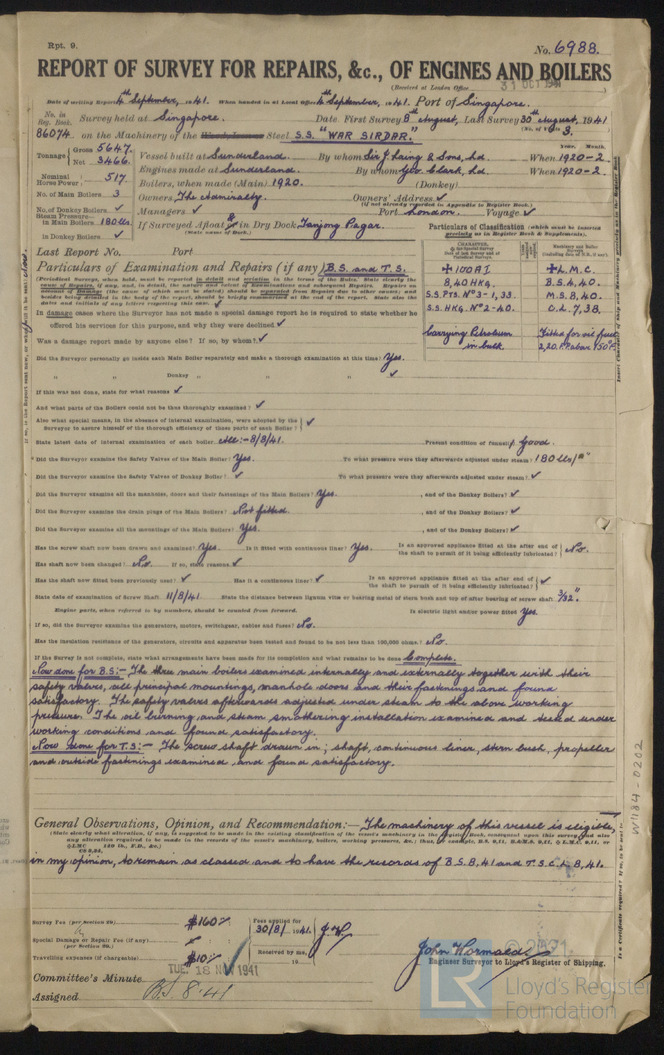 Rpt. 9.
No. 6988.
REPORT OF SURVEY FOR REPAIRS, &c., OF ENGINES AND BOILERS
(Received at London Office 31 OCT 1941
Date of writing Report 4th September, 1941. When handed in at Local Office 4th September, 1941. Port of Singapore.
No. in Reg. Book. Survey held at Singapore. Date. First Survey 8th August, Last Survey 30th August, 1941
86074. on the Machinery of the Wood, Iron or Steel S.S. "WAR SIRDAR." (No. of Visits 3.
Tonnage Gross 5647. Net 3466. Vessel built at Sunderland. By whom Sir J. Laing & Sons, Ld. When 1920-2.
Engines made at Sunderland. By whom Geo. Clark, Ld. When 1920-2.
Nominal Horse Power 517. Boilers, when made (Main) 1920. (Donkey)
No. of Main Boilers 3 Owners The Admiralty. Owners' Address ✓
(if not already recorded in Appendix to Register Book.)
No. of Donkey Boilers ✓ Managers ✓ Port London. Voyage ✓
Steam Pressure in Main Boilers 180 lbs. If Surveyed Afloat or in Dry Dock Tanjong Pagar.
(State name of Dock.)
in Donkey Boilers ✓
Particulars of Classification (which must be inserted precisely as in Register Book & Supplements).
Last Report No. Port
Particulars of Examination and Repairs (if any) B.S. and T.S.
✠ 100 A I ✠ L.M.C.
8,40 HKg. B.S. 4,40.
S.S. Pts. No 3-1,33. M.S. 8,40.
S.S. HKg. No 2-40. O.L. 7,38.
Carrying Petroleum in bulk Fitted for oil fuel 2,20. F.P. above 150°F.
In damage cases where the Surveyor has not made a special damage report he is required to state whether he
offered his services for this purpose, and why they were declined ✓
Was a damage report made by anyone else? If so, by whom? ✓
Did the Surveyor personally go inside each Main Boiler separately and make a thorough examination at this time? Yes.
" " Donkey " " " ✓
If this was not done, state for what reasons ✓
And what parts of the Boilers could not be thus thoroughly examined? ✓
Also what special means, in the absence of internal examination, were adopted by the Surveyor to assure himself of the thorough efficiency of those parts of each Boiler? ✓
State latest date of internal examination of each boiler. All:- 8/8/41. Present condition of funnel(s) Good.
Did the Surveyor examine the Safety Valves of the Main Boiler? Yes. To what pressure were they afterwards adjusted under steam? 180 lbs/□"
Did the Surveyor examine the Safety Valves of Donkey Boiler? ✓ To what pressure were they afterwards adjusted under steam? ✓
Did the Surveyor examine all the manholes, doors and their fastenings of the Main Boilers? Yes. , and of the Donkey Boilers? ✓
Did the Surveyor examine the drain plugs of the Main Boilers? Not fitted. , and of the Donkey Boilers? ✓
Did the Surveyor examine all the mountings of the Main Boilers? Yes. , and of the Donkey Boilers? ✓
Has the screw shaft now been drawn and examined? Yes. Is it fitted with continuous liner? Yes. Is an approved appliance fitted at the after end of the shaft to permit of it being efficiently lubricated? No.
Has shaft now been changed? No. If so, state reasons ✓
Has the shaft now fitted been previously used? ✓ Has it a continuous liner? ✓ Is an approved appliance fitted at the after end of the shaft to permit of it being efficiently lubricated? ✓
State date of examination of Screw Shaft 11/8/41. State the distance between lignum vitæ or bearing metal of stern bush and top of after bearing of screw shaft 3/32".
Engine parts, when referred to by numbers, should be counted from forward. Is electric light and/or power fitted Yes.
If so, did the Surveyor examine the generators, motors, switchgear, cables and fuses? No.
Has the insulation resistance of the generators, circuits and apparatus been tested and found to be not less than 100,000 ohms? No.
If the Survey is not complete, state what arrangements have been made for its completion and what remains to be done Complete.
Now done for B.S:- The three main boilers examined internally and externally together with their
safety valves, all principal mountings, manhole doors and their fastenings and found
satisfactory. The safety valves afterwards adjusted under steam to the above working
pressure. The oil burning and steam smothering installation examined and tested under
working conditions and found satisfactory.
Now done for T.S:- The screw shaft drawn in; shaft, continuous liner, stern bush, propeller
and outside fastenings examined and found satisfactory.
General Observations, Opinion, and Recommendation:— The machinery of this vessel is eligible,
in my opinion, to remain as classed and to have the records of B.S. 8,41 and T.S.C.L. 8,41.
Survey Fee (per Section 29) $160/-
Special Damage or Repair Fee (if any) (per Section 29.)
Travelling expenses (if chargeable) $10/-
Fees applied for 30/8/1941.
Received by me, 19
John Wormald
Engineer Surveyor to Lloyd's Register of Shipping.
TUE. 18 NOV 1941
Committee's Minute
Assigned B.S. 8.41
W1184-0202
© 2021
LR
Lloyd's Register
Foundation